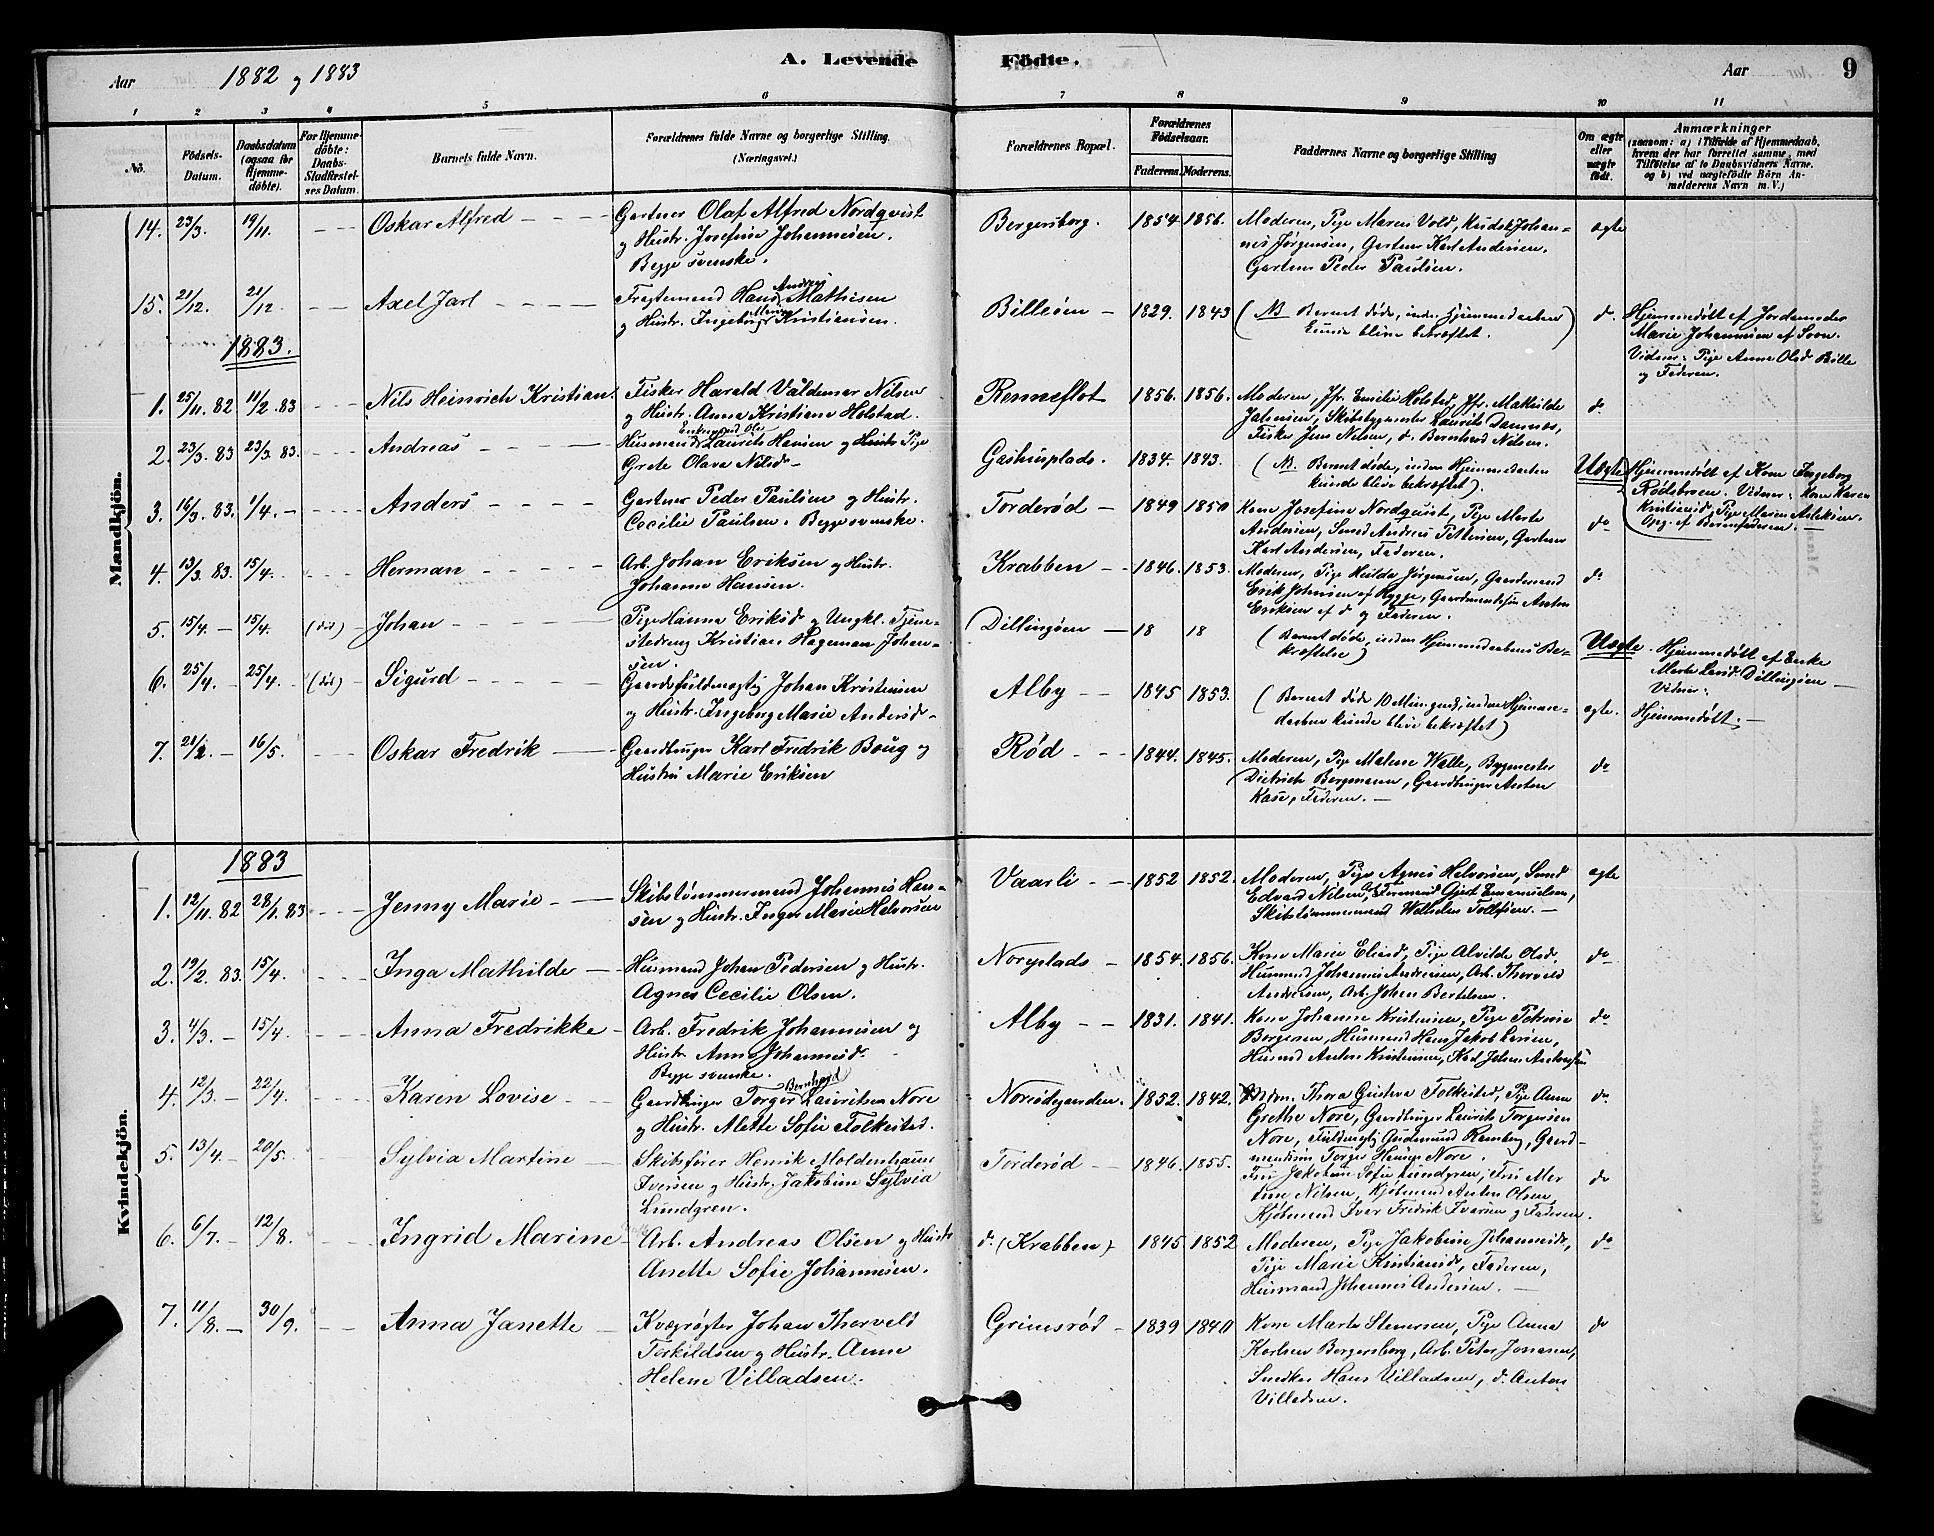 A. Levende Fødte.
Aar 1882 og 1883
Aar 9
1 2 3 4 5 6 7 8 9 10 11
No.
Fødsels-Datum.
Daabsdatum (ogsaa for Hjemmedøbte).
For Hjemmedøbte: Daabs-Stadfæstelses Datum.
Barnets fulde Navn.
Forældrenes fulde Navne og borgerlige Stilling. (Næringsvei.)
Forældrenes Bopæl.
Forældrenes Fødselsaar.
Faderens. Moderens.
Faddernes Navne og borgerlige Stilling
Om ægte eller uægte født.
Anmærkninger
(saasom: a) i Tilfælde af Hjemmedaab, hvem der har forrettet samme, med Tilføielse af to Daabsvidners Navne. og b) ved uægtefødte Børn Anmelderens Navn m. V.)
Mandkjön.
14. 23/3. 19/11. Oskar Alfred
Gartner Olaf Alfred Nordqvist
og Hustr. Josefine Johannesen.
Begge svenske.
Bergersborg. 1854. 1856.
Moderen, Pige Maren Vold, Kudsk Johan-
nes Jørgensen, Gartner Karl Andersen.
Gartner Peder Paulsen.
ægte
15. 21/12. 21/12. Axel Jarl
Fragtemand Hans Andreas Mathisen
og Hustr. Ingeborg Marie Kristiansen.
Billeøen 1829. 1843
(NB Barnet døde, inden Hjemmedaaben
kunde blive bekræftet.)
do.
Hjemmedøbt af Jordemoder
Marie Johannesen af Soon.
Vidner: Pige Anne Olsd. Bille
og Faderen.
1883.
1. 25/11. 82 11/2. 83 Nils Heinrich Kristian.
Fisker Harald Valdemar Nilsen
og Hustr. Anna Kristiane Holstad.
Renneflot 1856. 1856.
Moderen, Jfr. Emilie Holstad, Jfr. Mathilde
Jahnsen, Skibsbygmester Laurits Damnæs,
Fisker Jens Nilsen, do. Bernhard Nilsen.
do
2. 23/3. 83 23/3. 83. Andreas
Enkemand Ole
Husmand Laurits Hansen og Hustr Pige
Grete Olava Nilsd.
Gashusplads. 1834. 1843.
(NB. Barnet døde, inden Hjemmedaaben
kunde blive bekræftet).
Uægte
Hjemmedøbt af Kone Ingeborg
Rødsbroen. Vidner: Kone Karen
Kristiansd., Pige Maren Aslaksen.
Opg. af Barnefaderen.
3. 16/3. 83. 1/4. Anders
Gartner Peder Paulsen og Hustr.
Cecilie Paulsen. Begge svenske.
Torderød 1849 1850
Kone Josefine Nordqvist, Pige Marte
Andersen, Smed Andreas Pettersen, Gartner
Karl Andersen, Faderen.
do
4. 13/3. 83. 15/4. Herman
Arb. Johan Eriksen og Hustr.
Johanne Hansen.
Krabben 1846. 1853.
Moderen, Pige Hulda Jørgensen, Gaardmand
Erik Johnsen af Rygge, Gaardmandssøn Anton
Eriksen af do og Faderen.
do
5. 15/4. 15/4. (død) Johan
Pige Hanna Eriksd. og Ungkl. Tjene-
stedreng Kristian Hageman Johan-
sen.
Dillingøen 18 18
(Barnet døde, inden Hjemmedaabens Be-
kræftelse)
Uægte.
Hjemmedøbt af Enke
Marte Larsd. Dillingøen
Vidner:
6. 25/4. 25/4. (død) Sigurd
Gaardsfuldmægtig Johan Kristiansen
og Hustr. Ingeborg Marie Andersd.
Alby 1845 1853.
(Barnet døde 10 Min. gml., inden Hjemme-
daaben kunde blive bekræftet)
ægte.
Hjemmedøbt:
7. 21/2. 16/5. Oskar Fredrik
Gaardbruger Karl Fredrik Boug og
Hustru Marie Eriksen
Rød 1844. 1845.
Moderen, Pige Malene Walle, Bygmester
Dietrich Bergmann, Gaardbruger Anton
Kase, Faderen.
do
Kvindekjön.
1883
1. 12/11. 82 28/1. 83 Jenny Marie
Skibstømmermand Johannes Han-
sen og Hustr. Inger Marie Halvorsen
Vaarli 1852 1852.
Moderen, Pige Agnes Halvorsen, Smed
Edvard Nilsen, Tømmermd Gjert Emanuelsen,
Skibstømmermand Wilhelm Tollefsen.
ægte
2. 19/2. 83. 15/4. Inga Mathilde
Husmand Johan Pedersen og Hustr.
Agnes Cecilie Olsen.
Norpplads 1854. 1856.
Kone Marie Eliasd, Pige Alvilde Olsd,
Husmand Johannes Andreasen, Arb. Thorvald
Andersen, Arb. Johan Bertelsen.
do
3. 4/3. 15/4. Anna Fredrikke
Arb. Fredrik Johannesen og
Hustr. Anna Johannesd.
Begge svenske.
Alby 1831. 1841.
Kone Johanne Kristiansen, Pige Petrea
Borgersen, Husmand Hans Jakob Larsen,
Husmd Anton Kristiansen, Karl Johan Antonsen
do
4. 12/3. 22/4. Karen Lovise
Gaardbruger Torger Bernhard Lauritsen Nore
og Hustr. Mette Sofie Folkestad.
Norødegaarden. 1852. 1842.
Thora Gustava Folkestad, Pige Anne
Grethe Nore, Gaardbruger Laurits Torgersen
Nore, Fuldmægtig Gudmund Ramberg, Gaard-
mandssøn Torger Hansen Nore.
do.
5. 13/4. 20/5. Sylvia Martine
Skibsfører Henrik Moldenhauer
Iversen og Hustr. Jakobine Sylvia
Lundgren.
Torderød 1846. 1855.
Fru Jakobine Sofie Lundgren, Fru Mar
tine Nilsen, Kjøbmand Anton Olsen,
Kjøbmand Ivar Fredrik Iversen og Faderen.
do
6. 6/7. 12/8. Ingrid Marine
Arb. Andreas Olsen og Hustr
Anette Sofie Johannesen.
do. (Krabben) 1845 1852
Moderen, Pige Jakobine Johannesd.,
Pige Marie Kristiansd., Faderen,
Husmand Johannes Andersen.
do
7. 11/8. 30/9. Anna Janette
Kvægrøgter Johan Thorvald
Torkildsen og Hustr. Anne
Helene Villadsen.
Grimesrød 1839 1840
Kone Marte Stenersen, Pige Anna
Karlsen Bergersborg, Arb. Peter Jonasen,
Snedker Hans Villadsen, do. Anton
Villadsen.
do